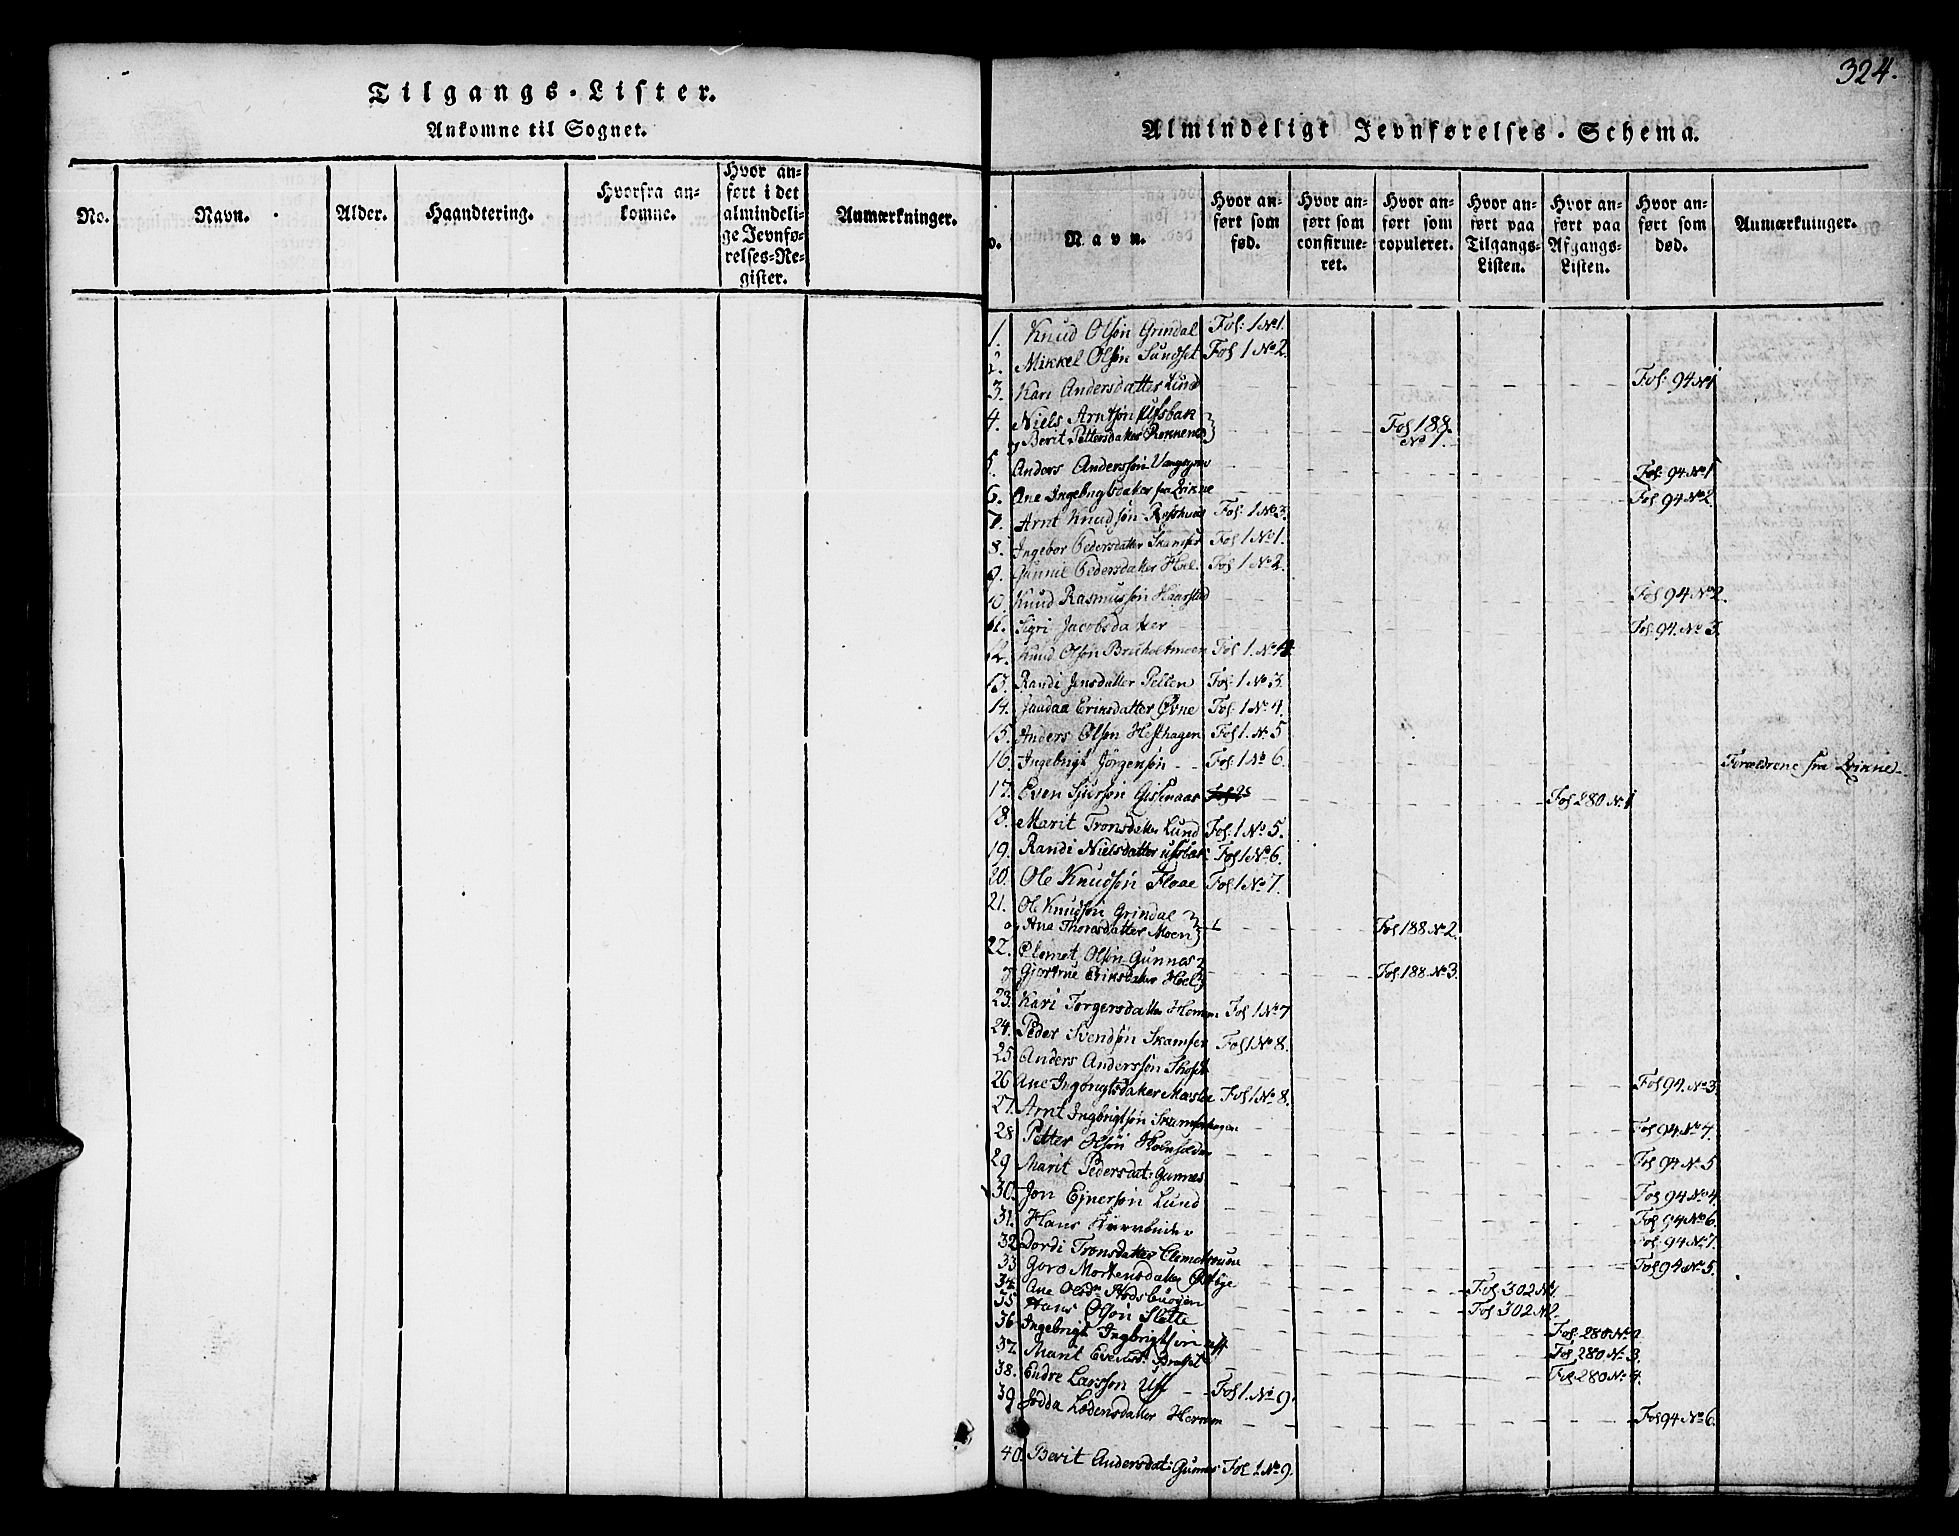 Tilgangs-Lister.
Ankomne til Sognet.
No.
Navn.
Alder.
Haandtering.
Hvorfra an-
komne.
Hvor an-
ført i det
almindeli-
ge Jevnfø-
relses-Re-
gister.
Anmærkninger.
324.
Almindeligt Jevnførelses-Schema.
Navn.
Hvor an-
ført som
fød.
Hvor an-
ført som
confirme-
ret.
Hvor an-
ført som
copuleret.
Hvor an-
ført paa
Tilgangs-
Listen.
Hvor an-
ført paa
Afgangs-
Listen.
Hvor an-
ført som
død.
Anmærkninger.
1. Knud Olsøn Grindal Fol: 1 No 1.
2. Mikkel Olsøn Sundset Fol 1 No 2.
3. Kari Andersdatter Lund Fol: 94 No 1
4. Niels Arntsøn Ufsbak
og Berit Pettersdatter Fol 188. No 1.
5. Anders Anderssøn Fol: 94 No 1
6. Ane Ingebrigtsdatter fra Qvikne Fol 94 No 2.
7. Arnt Knudsøn Fol: 1 No 3.
8. Ingebor Pedersdatter Skamfer Fol 1 No 1.
9. Gunnil Pedersdatter Hoel Fol 1 No 2.
10. Knud Rasmussøn Haarstad Fol 94 No 2.
11. Sigri Jacobsdatter Fol: 94. No 3.
12. Knud Olsøn Fol 1. No 4.
13. Randi Jensdatter Fol: 1 No 3.
14. Eriksdatter Øvne Fol: 1 No 4.
15. Anders Olsøn Hesthagen Fol 1. No 5
16. Ingebrigt Jörgensøn Fol: 1 No 6. Forældrene fra Qvikne
17. Even Fol 280 No 1
18. Marit Tronsdatter Lund Fol. 1 No 5.
19. Randi Nielsdatter Ufsbak Fol 1 No 6.
20. Ole Knudsøn Floae Fol 1 No 7.
21. Ole Knudsøn Grindal
og Ane Thorasdatter Moen Fol 188 No 2.
22. Clemet Olsøn Gunnes
og Gjertrue Eriksdatter Hoel Fol. 188. No 3.
23. Kari Torgersdatter Hemm Fol 1 No 7
24. Peder Svendsøn Skamfer Fol 1 No 8.
25. Anders Anderssøn Fol 94. No 3
26 Ane Ingbrigtsdatter Fol 1 No 8.
27. Arnt Ingbrigtsøn Fol 94 No 4.
28. Petter Olsøn Fol 94 No 5
29 Marit Pedersdat: Gunnes Fol 94 No 4
30. Jon Ejnersøn Lund Fol 94 No 6.
31. Hans Fol: 94 No 7.
32 Dordi Tronsdatter Fol 94 No 5.
33 Goro Mortensdatter
34. Ane Olsdr Fol 302 No 1.
35 Hans Olsøn Slette Fol 302 No 2.
36 Ingebrigt Ingbrigtsøn Uff Fol. 280 No 2
37. Marit Evensdr Fol 280 No 3.
38. Endre Larssøn Uff Fol 1. No 9. Fol 280 No 4.
39 Jödda Lodensdatter Hemm Fol 94 No 6.
40. Berit Andersdat: Gunnes Fol 1 No 9.